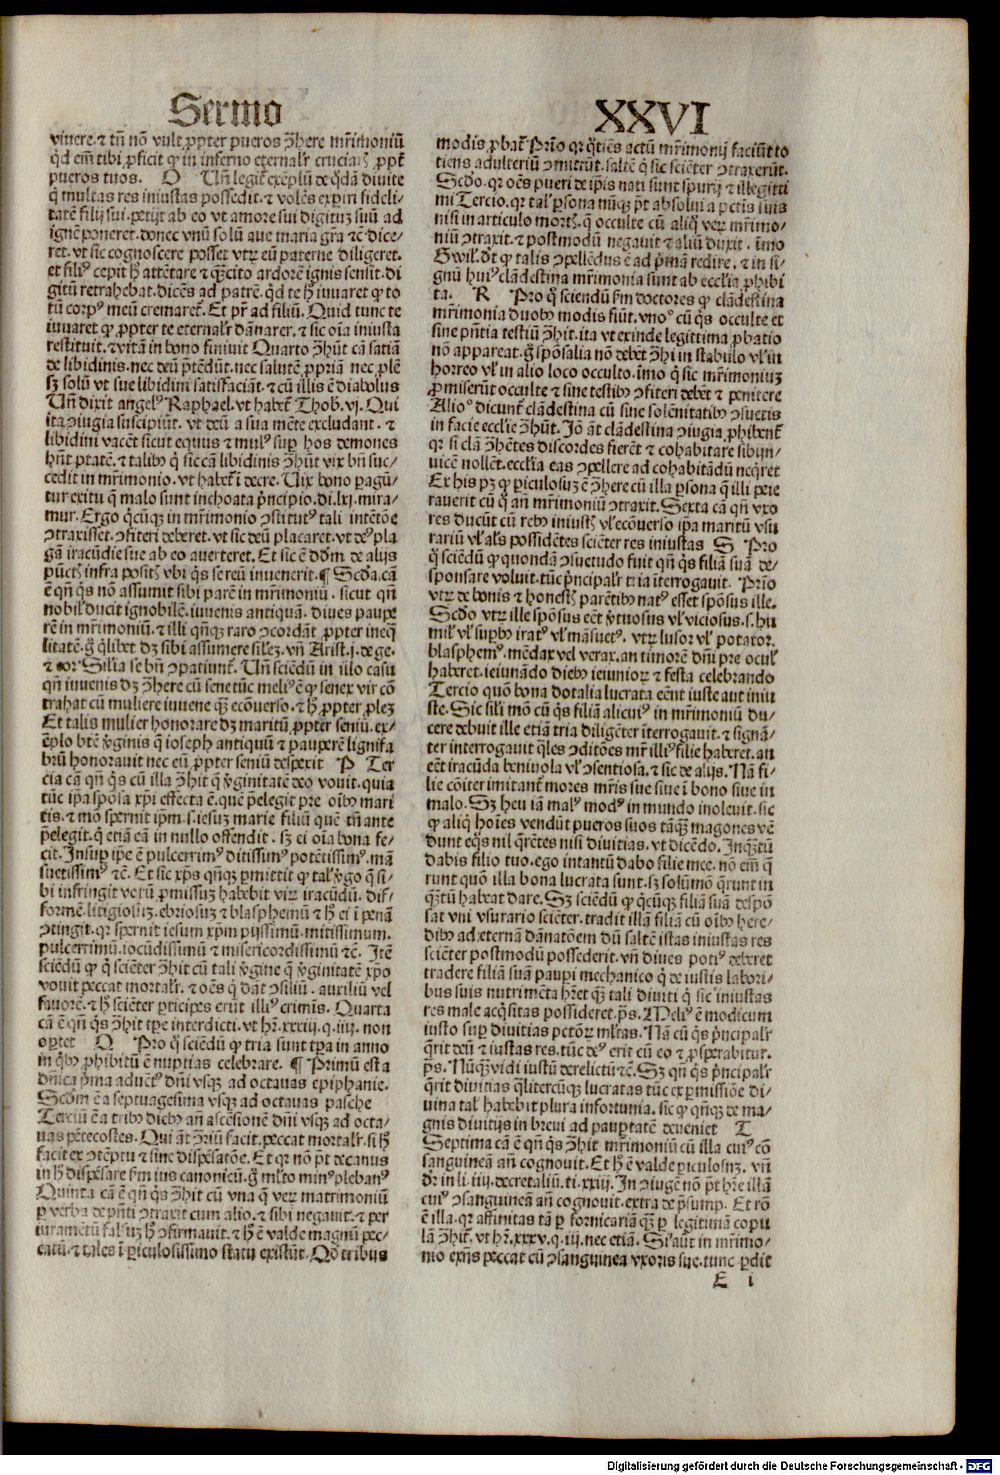 Sermo
XXVI
viuere.⁊ tñ nõ vult ꝓpter pueros ↄ̃here mr̃imoniũ
qd em̃ tibi ꝓficit ꝙ tu in inferno eternalr̃ cruciaris ꝓpt̃
pueros tuos. O Uñ legit̃ exẽplũ de qdã diuite
q̃ multas res iniustas possedit.⁊ volẽs exꝑiri fideli-
tatẽ filij sui.petijt ab eo vt amore sui digituȝ suũ ad
ignẽ poneret.donec vnũ solũ aue maria gr̃a ⁊c̃ dice-
ret.vt sic cognoscere posset vtrꝫ eũ paterne diligeret.
et filiꝰ cepit h̃ attẽtare ⁊ q̃cito ardorẽ ignis sensit.di
gitũ retrahebat.dicẽs ad patrẽ.qd te h̃ iuuaret ꝙ to
tũ corpꝰ meũ cremaret̃. Et pr̃ ad filiũ. Quid tunc te
iuuaret ꝙ ꝓpter te eternalr̃ dãnarer.⁊ sic oĩa iniusta
restituit.⁊ vitã in bono finiuit Quarto ↄ̃hũt cã satiã
de libidinis.nec deũ p̃tẽdũt.nec salutẽ ꝓpriã nec ꝓlẽ
sȝ solũ vt sue libidini satisfaciãt.⁊ cũ illis ẽ diabolus
Uñ dixit angelꝰ Raphael.vt habet̃ Thob.vj. Qui
ita ↄiugia suscipiũt.vt deũ a sua mẽte excludant.⁊
libidini vacẽt sicut equus ⁊ mulꝰ suꝑ hos demones
hñt ptãtẽ.⁊ talibꝰ q̃ sic cã libidinis ↄ̃hũt vix bñ suc-
cedit in mr̃imonio.vt habet̃ ĩ decre. Uix bono ꝑagũ-
tur exitu q̃ malo sunt inchoata p̃ncipio.di.lxj.mira-
mur. Ergo q̃cũqȝ in mr̃imonio ↄstitutꝰ tali intẽtõe
ↄtraxisset.ↄfiteri deberet.vt sic deũ placaret.vt deꝰ pla
gã iracũdie sue ab eo auerteret. Et sic ẽ dõm de alijs
pũctis infra positis vbi q̃s se reũ inuenerit.¶ Scd̃a cã
ẽ qñ q̃s nõ assumit sibi parẽ in mr̃imoniũ.sicut qñ
nobil̃ ducit ignobilẽ.iuuenis antiquã.diues pauꝑe
rẽ in mr̃imoniũ.⁊ illi qñqȝ raro ↄcordãt ꝓpter ineq̃
litatẽ.g̃ q̃libet dȝ sibi assumere sil̃eȝ.vñ Arist.j.de ge.
⁊ cor̃ Sil̃ia se bñ ↄpatiunt̃. Uñ sciẽdũ in illo casu
qñ iuuenis dȝ ↄ̃here cũ sene tũc meliꝰ ẽ ꝙ senex vir cõ
trahat cũ muliere iuuene qȝ ecõuerso.⁊ h̃ ꝓpter ꝓleȝ
Et talis mulier honorare dȝ maritũ ꝓpter seniũ.ex-
ẽplo btẽ v̾ginis q̃ ioseph antiquũ ⁊ pauꝑem lignifa
brũ honorauit nec eũ ꝓpter seniũ despexit P Ter
cia cã qñ q̃s cũ illa ↄ̃hit q̃ v̾ginitatẽ deo vouit.quia
tũc ip̃a spõsa xp̃i effecta ẽ.quẽ p̃elegit pre oĩbꝰ mari
tis.⁊ mõ spernit ip̃m.s.iesuȝ marie filiũ quẽ tñ ante
p̃elegit.q̃ etiã eã in nullo offendit.sȝ ei oĩa bona fe-
cit. Insuꝑ ip̃e ẽ pulcerrimꝰ ditissimꝰ potẽtissimꝰ.mã
suetissimꝰ ⁊c̃. Et sic xp̃s qñqȝ ꝑmittit ꝙ tal̃ v̾go q̃ si-
bi infringit votũ ꝓmissuȝ habebit virꝫ iracũdũ.dif-
formẽ.litigiosuȝ.ebriosuȝ ⁊ blasphemũ ⁊ h̃ ei ĩ penã
ↄtingit.qꝛ spernit iesum xp̃m pijssimũ.mitissimum.
pulcerrimũ.iocũdissimũ ⁊ misericordissimũ ⁊c̃. Itẽ
sciẽdũ ꝙ q̃ sciẽter ↄ̃hit cũ tali v̾gine q̃ v̾ginitatẽ xp̃o
vouit peccat mortalr̃.⁊ oẽs q̃ dãt ↄsiliũ.auxiliũ vel
fauorẽ.⁊ h̃ sciẽter ꝑticipes erũt illiꝰ crimĩs. Quarta
cã ẽ qñ q̃s ↄ̃hit tꝑe interdicti.vt hr̃.xxxiij.q.iiij.non
oportet Q Pro q̃ sciẽdũ ꝙ tria sunt tꝑa in anno
in q̃bꝰ ꝓhibitũ ẽ nuptias celebrare.¶ Primũ est a
dñica p̃ma aduẽtꝰ dñi vsqȝ ad octauas epiphanie.
Scdm̃ ẽ a septuagesima vsqȝ ad octauas pasche
Terciũ ẽ a tribꝰ diebꝰ añ ascẽsionẽ dñi vsqȝ ad octa-
uas pẽtecostes. Qui ãt ↄ̃riũ facit.peccat mortalr̃.si h̃
facit ex ↄtẽptu ⁊ sine dispẽsatõe. Et qꝛ nõ p̃t decanus
in h̃ dispẽsare ßm ius canonicũ.g̃ ml̃to minꝰ plebanꝰ
Quinta cã ẽ qñ q̃s ↄ̃hit cũ vna q̃ verꝫ matrimoniũ
ꝑ verba de pñti ↄtraxit cum alio.⁊ sibi negauit.⁊ per
iuramẽtũ falsuȝ h̃ ↄfirmauit.⁊ h̃ ẽ valde magnũ pec-
catũ.⁊ tales ĩ ꝑiculosissimo statu existũt. Qd̃ tribus
modis ꝓbat̃ Prĩo qꝛ q̃tiẽs actũ mr̃imonij faciũt to
tiens adulteriũ ↄmittũt.saltẽ q̃ sic sciẽter ↄtraxerũt.
Scd̃o.qꝛ oẽs pueri de ip̃is nati sunt spurij ⁊ illegitti
mi Tercio.qꝛ tal̃ ꝑsona nũqȝ p̃t absolui a pctis̃ suis
nisi in articulo mortis.q̃ occulte cũ aliq̃ verꝫ mr̃imo-
niũ ↄtraxit.⁊ postmodũ negauit ⁊ aliũ duxit.ĩmo
Gwil.dt̃ ꝙ talis ↄpellẽdus ẽ ad p̃mã redire.⁊ in si-
gnũ huiꝰ clãdestina mr̃imonia sunt ab ecclĩa ꝓhibi
ta. R Pro q̃ sciendũ ßm doctores ꝙ clãdestina
mr̃imonia duobꝰ modis fiũt.vnoº cũ q̃s occulte et
sine pñtia testiũ ↄ̃hit.ita vt exinde legittima ꝓbatio
nõ appareat.g̃ spõsalia nõ debẽt ↄ̃hi in stabulo vl̃ in
horreo vl̃ in alio loco occulto.ĩmo q̃ sic mr̃imoniuȝ
ꝓmiserũt occulte ⁊ sine testibꝰ ↄfiteri debẽt ⁊ penitere
Alioº dicunt̃ clãdestina cũ sine solẽnitatibꝰ ↄsuetis
in facie ecclie ↄ̃hũt. Iõ ãt clãdestina ↄiugia ꝓhibent̃
qꝛ si clã ↄ̃hẽtes discordes fierẽt ⁊ cohabitare sibijn-
uicẽ nollẽt.ecclĩa eas ↄpellere ad cohabitãdũ neq̃ret
Ex his pȝ ꝙ ꝑiculosuȝ ẽ ↄ̃here cũ illa ꝑsona q̃ illi peie
rauerit cũ q̃ añ mr̃imoniũ ↄtraxit. Sexta cã qñ vxo
res ducũt cũ rebꝰ iniustis vl̃ ecõuerso ip̃a maritũ vsu
rariũ vl̃ al̃s possidẽtes sciẽter res iniustas S Pro
q̃ sciẽdũ ꝙ quondã ↄsuetudo fuit qñ q̃s filiã suã de-
sponsare voluit.tũc p̃ncipalr̃ tria ĩterrogauit. Prĩo
vtrꝫ de bonis ⁊ honestis parẽtibꝰ natꝰ esset spõsus ille.
Scd̃o vtrꝫ ille spõsus eẽt v̾tuosus vl̃ viciosus.s.hu
mil̃ vl̃ suꝑbꝰ iratꝰ vl̃ mãsuetꝰ.vtrꝫ lusor vl̃ potator.
blasphemꝰ.mẽdax vel verax.an timorẽ dñi pre ocul̃
haberet.ieiunãdo diebꝰ ieiuniorꝫ ⁊ festa celebrando
Tercio quõ bona dotalia lucrata eẽnt iuste aut iniu
ste. Sic sil̃i mõ cũ q̃s filiã alicuiꝰ in mr̃imoniũ du-
cere debuit ille etiã tria diligẽter ĩterrogauit.⁊ signã-
ter interrogauit q̃les ↄditões mr̃ illiꝰ filie haberet.an
eẽt iracũda beniuola vl̃ ↄtentiosa.⁊ sic de alijs. Nã fi-
lie cõiter imitant̃ mores mr̃is sue siue ĩ bono siue in
malo. Sȝ heu iã malꝰ modꝰ in mundo inoleuit.sic
ꝙ aliq̃ hoĩes vendũt pueros suos tãqȝ magones vẽ
dunt eq̃s nil q̃rẽtes nisi diuitias.vt dicẽdo. Inq̃tũ
dabis filio tuo.ego intantũ dabo filie mee.nõ em̃ q̃
runt quõ illa bona lucrata sunt.sȝ solũmõ q̃runt in
q̃ȝtũ habeat dare. Sȝ sciẽdũ ꝙ q̃cũqȝ filiã suã despõ
sat vni vsurario sciẽter.tradit illã filiã cũ oĩbꝰ here-
dibꝰ ad eternã dãnatõem dũ saltẽ istas iniustas res
sciẽter postmodũ possederit.vñ diues potiꝰ deberet
tradere filiã suã pauꝑi mechanico q̃ de iustis labori-
bus suis nutrimẽta hr̃et qȝ tali diuiti q̃ sic iniustas
res male acq̃sitas possideret.ps̃. Meliꝰ ẽ modicum
iusto suꝑ diuitias pctõrꝫ ml̃tas. Nã cũ q̃s p̃ncipalr̃
q̃rit deũ ⁊ iustas res.tũc deꝰ erit cũ eo ⁊ ꝓsperabitur.
ps̃. Nũqȝ vidi iustũ derelictũ ⁊c̃. Sȝ qñ q̃s p̃ncipalr̃
q̃rit diuitias q̃litercũqȝ lucratas tũc ex ꝑmissiõe di-
uina tal̃ habebit plura infortunia.sic ꝙ qñqȝ de ma-
gnis diuitijs in breui ad pauꝑtatẽ deueniet T
Septima cã ẽ qñ q̃s ↄ̃hit mr̃imoniũ cũ illa cuiꝰ cõ
sanguineã añ cognouit. Et h̃ ẽ valde ꝑiculosuȝ.vñ
dr̃ in li.iiij.decretaliũ.ti.xxiij. In ↄiugẽ nõ p̃t hr̃e illã
cuiꝰ ↄsanguineã añ cognouit.extra de p̃sump. Et rõ
ẽ illa.qꝛ affinitas tã ꝑ fornicariã qȝ ꝑ legittimã copu
lã ↄ̃hit̃.vt hr̃.xxxv.q.iij.nec etiã. Si aũt in mr̃imo-
nio exñs peccat cũ ↄsanguinea vxoris sue.tunc ꝑdit
E i
Digitalisierung gefördert durch die Deutsche Forschungsgemeinschaft - DFG